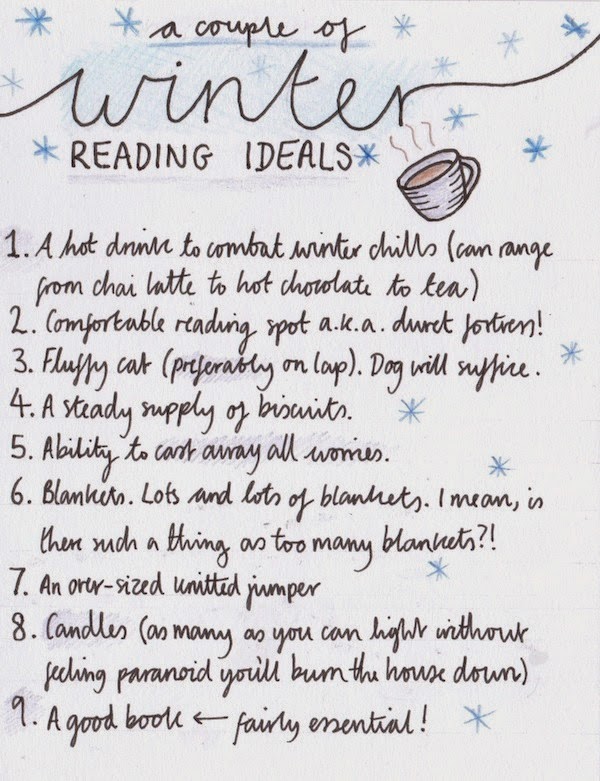 a couple of
winter
READING IDEALS
1. A hot drink to combat winter chills (can range
from chai latte to hot chocolate to tea)
2. Comfortable reading spot a.k.a. duvet fortress!
3. Fluffy cat (preferably on lap). Dog will suffice.
4. A steady supply of biscuits.
5. Ability to cast away all worries.
6. Blankets. Lots and lots of blankets. I mean, is
there such a thing as too many blankets?!
7. An over-sized knitted jumper
8. Candles (as many as you can light without
feeling paranoid you'll burn the house down)
9. A good book ← fairly essential!